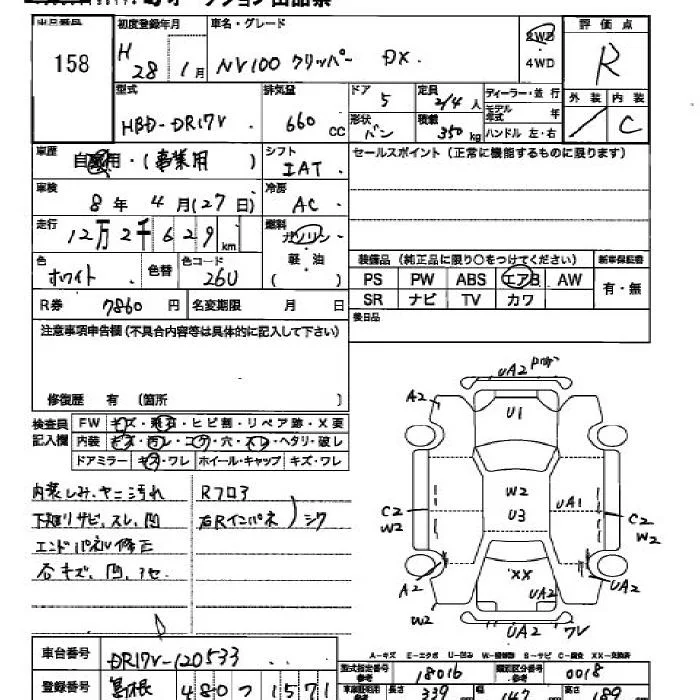 出品番号 初度登録年月 車名・グレード 2WD 評価点
158 H 28年 1月 NV100 クリッパー DX. 4WD R
型式 HBD-DR17V. 排気量 660 CC ドア 5 定員 2/4人 ディーラー・並行 外装 内装
形状 バン 積載 350kg モデル年式 年 ハンドル 左・右 / C
車歴 自家用・(事業用) シフト IAT. セールスポイント(正常に機能するものに限ります)
車検 8年 4月(27日) 冷房 AC.
走行 12万2千629km 燃料 ガソリン 軽油 ( )
色 ホワイト. 色替 色コード 26U
装備品(純正品に限り○をつけてください) 新車保証書
PS PW ABS エアB AW 有・無
SR ナビ TV カワ
R券 7860円 名変期限 月 日 後日品
注意事項申告欄(不具合内容等は具体的に記入して下さい)
修復歴 有 (箇所 )
検査員記入欄 FW キズ・飛石・ヒビ割・リペア跡・X要
内装 キズ・汚レ・コゲ・穴・スレ・ヘタリ・破レ
ドアミラー キズ・ワレ ホイール・キャップ キズ・ワレ
内装しみ、ヤニ汚れ Rフロア
下廻りサビ、スレ、凹 右Rインパネ )シワ
エンドパネル修正
石キズ、凹、アセ
UA2
A2 U1
W2
U3 UA1
C2 W2 C2 W2
A2 XX UA2 UA2
W2 UA2 7V
A-キズ E-エクボ U-凹み W-補修跡 S-サビ C-腐食 XX-交換済
車台番号 DR17V-120533
登録番号 480 つ 1571
型式指定番号 参考 18016 類別区分番号 参考 0018
長さ 339 147 189